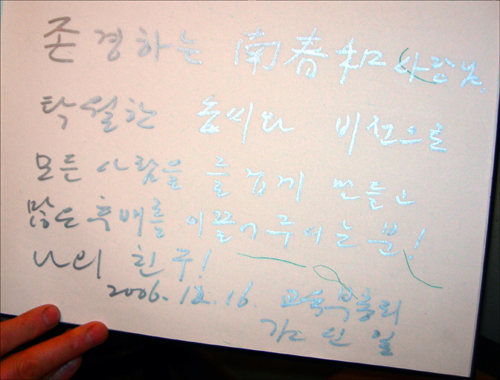 존경하는 南春和
탁월한 솜씨와 비전으로
모든 사람을 즐겁게 만들고
많은 후배를 이끌어주시는 분!
나의 친구!
2006. 12. 16. 교육부총리
김신일